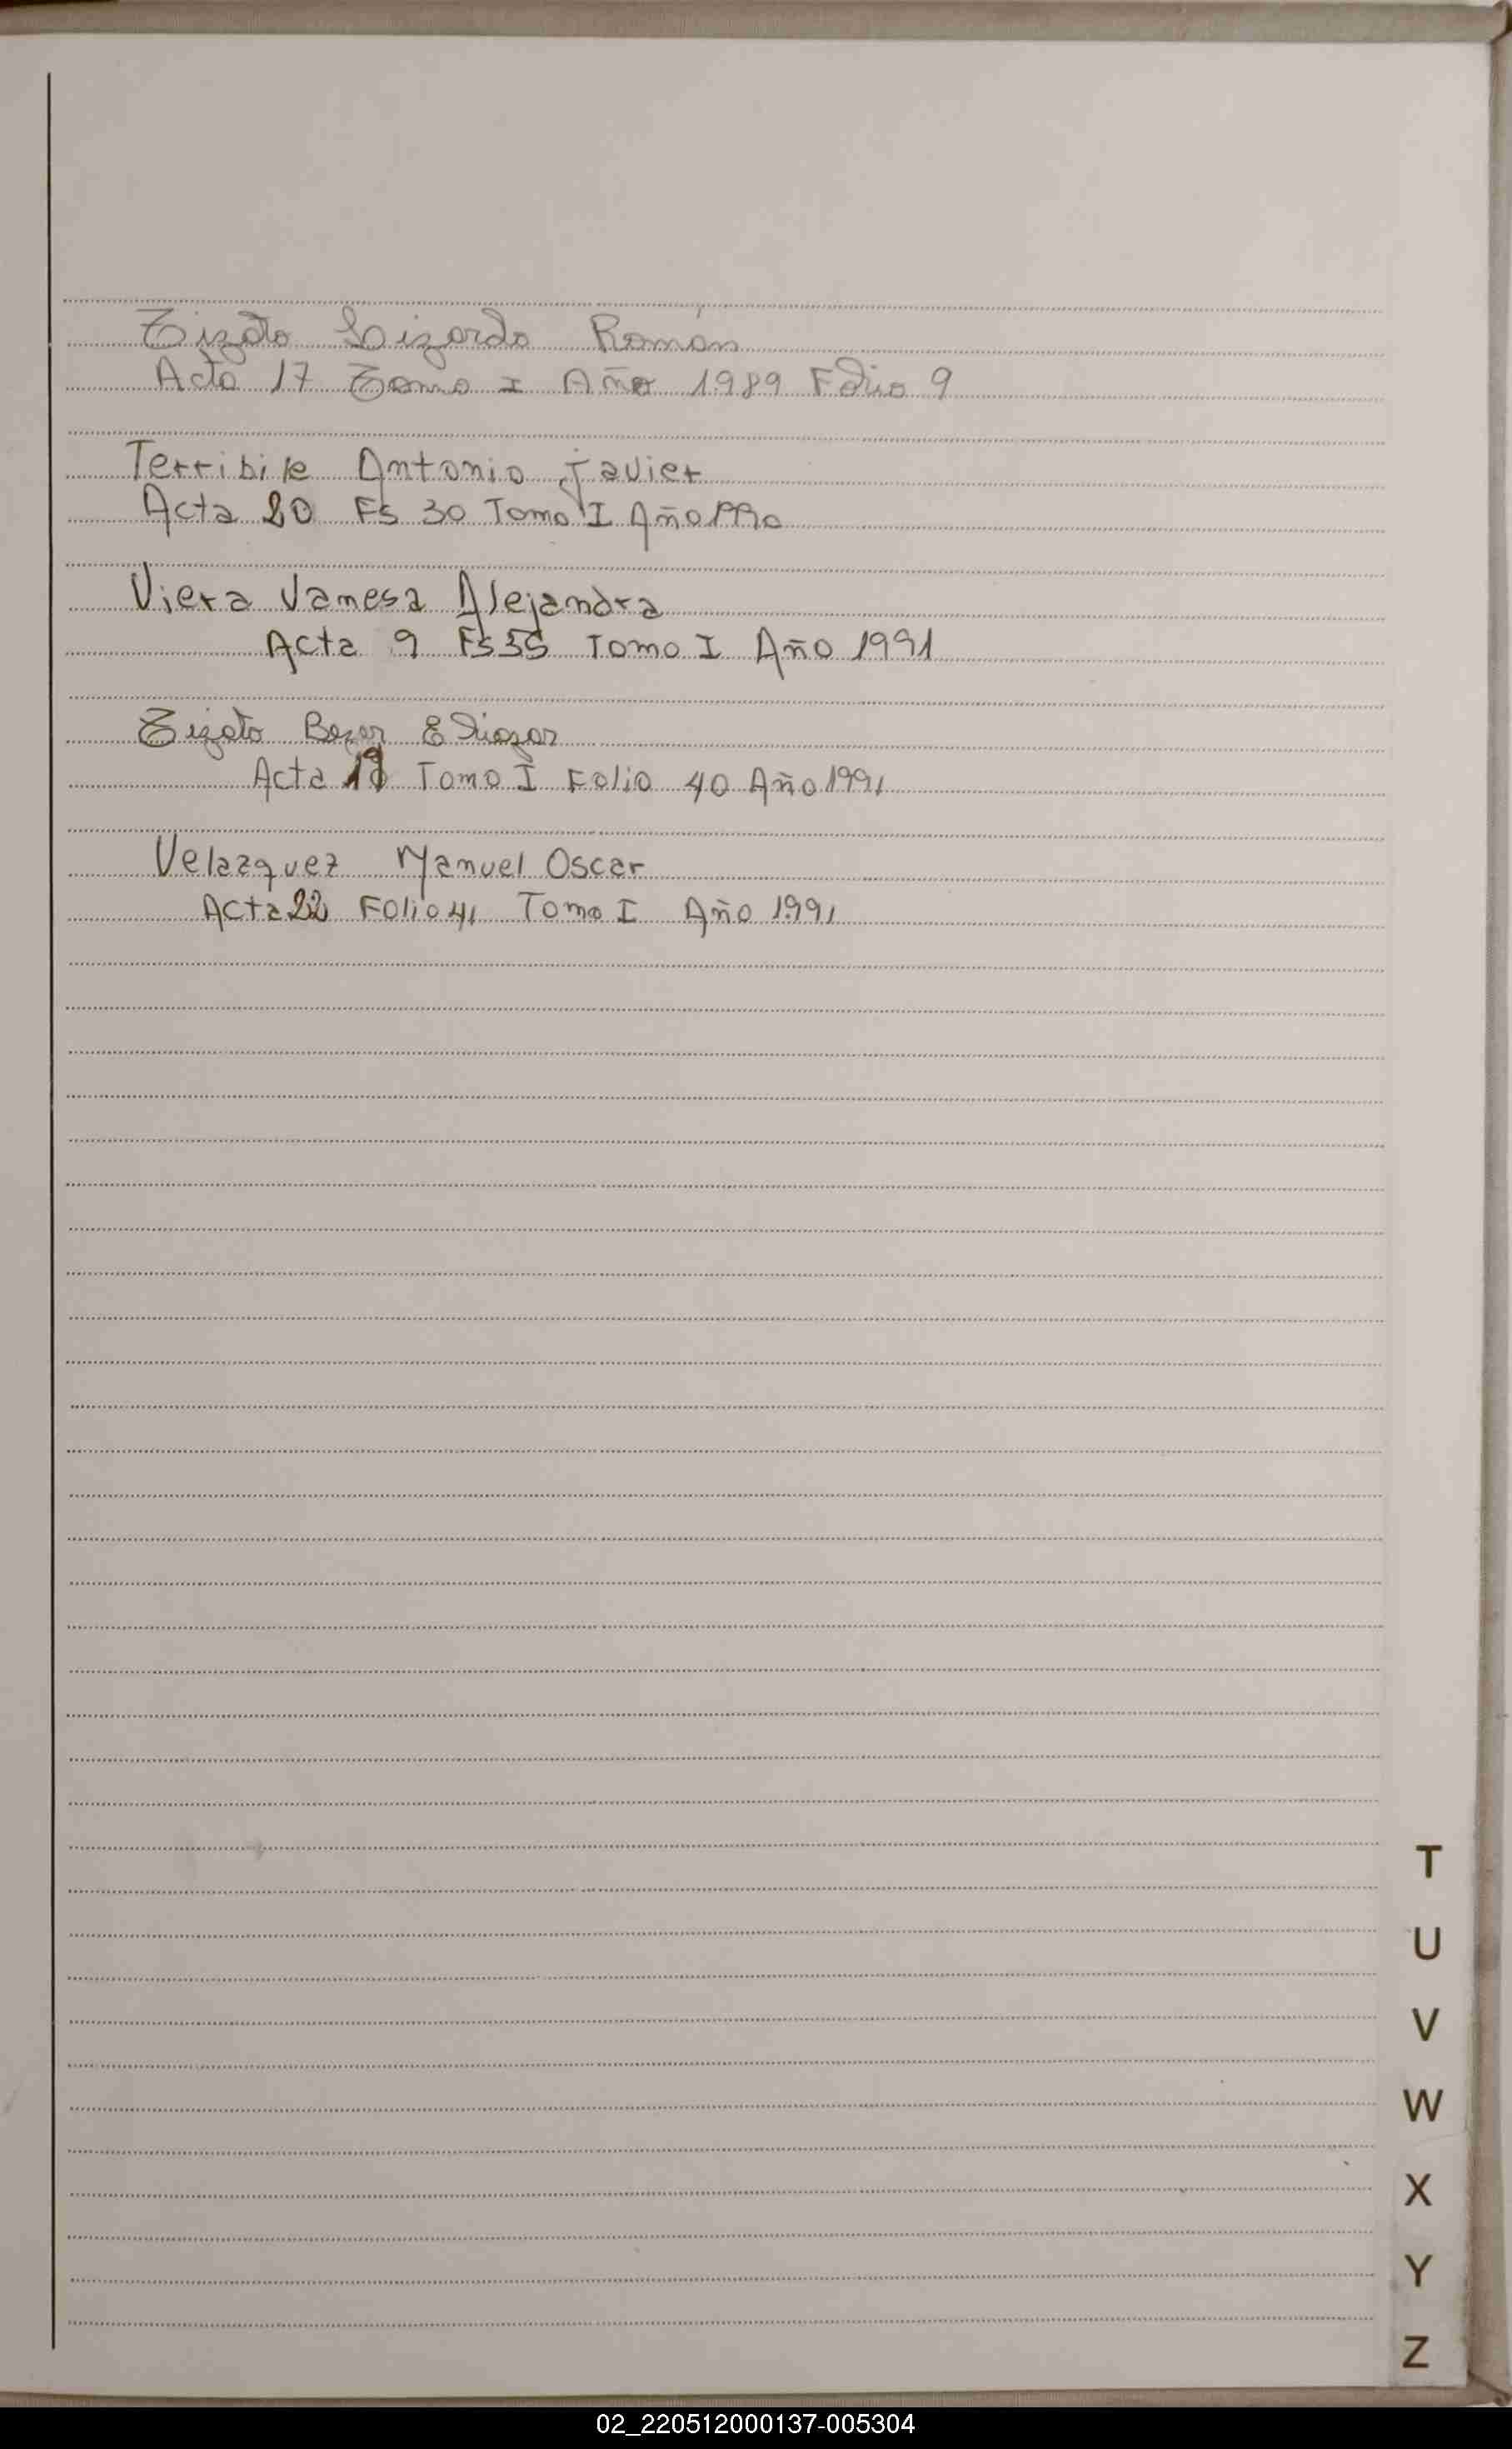 Tizato Lizardo Román
Acta 17 Tomo I Año 1989 Folio 9
Terribile Antonio Javier
Acta 20 Fs 30 Tomo I Año 1990
Viera Vanesa Alejandra
Acta 9 Fs 35 Tomo I Año 1991
Tizato Eliazar
Acta Tomo I Folio 40 Año 1991
Velazquez Manuel Oscar
Acta 22 Folio 41 Tomo I Año 1991
T
U
V
W
X
Y
Z
02_220512000137-005304